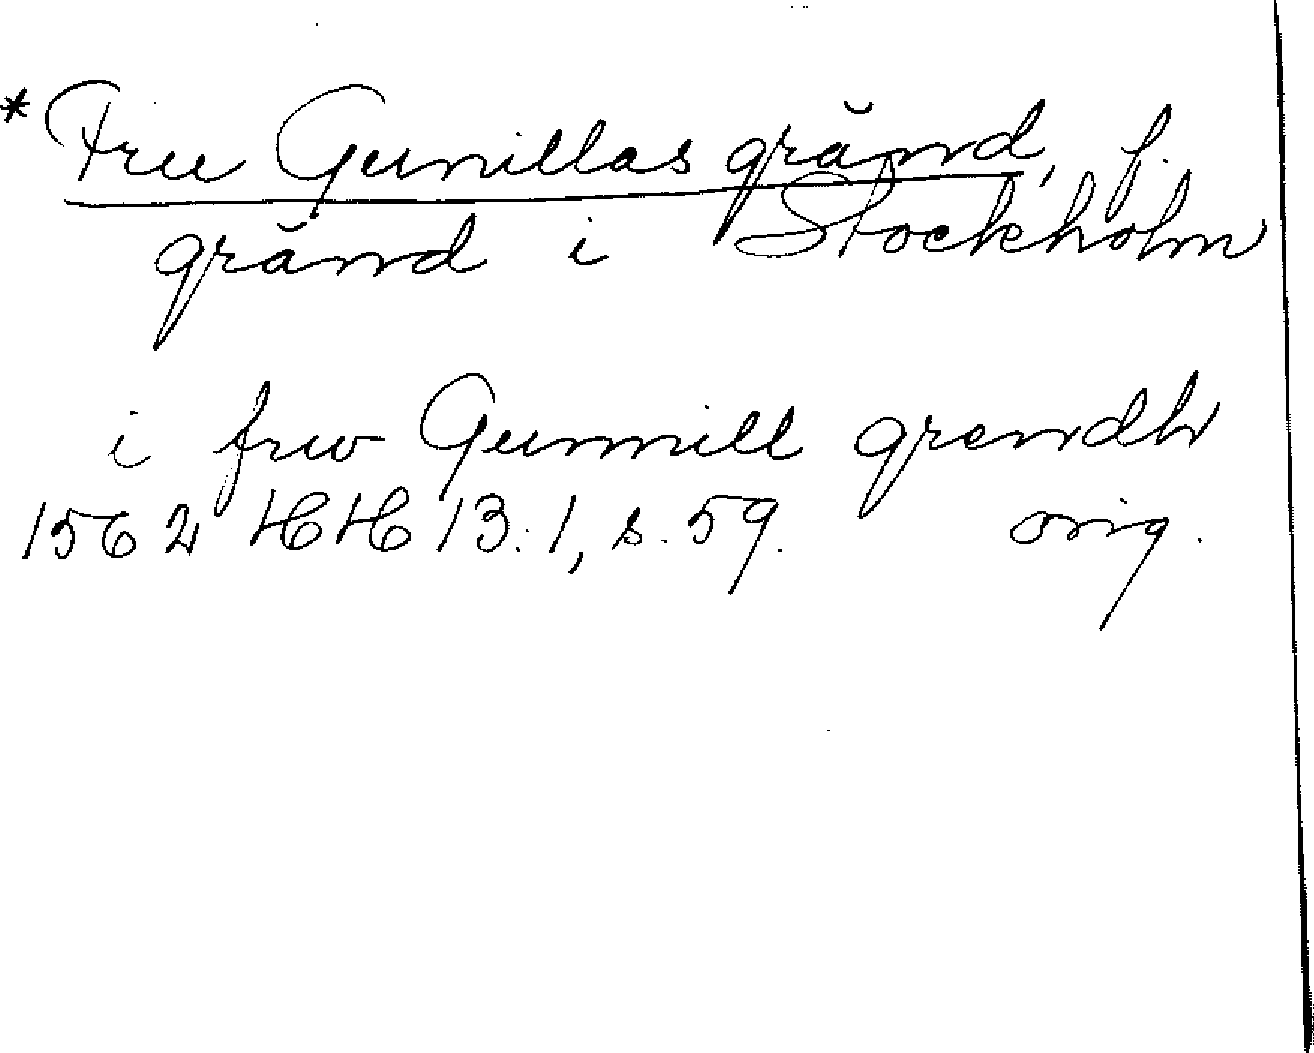 *Fru Gunillas gränd, f.
gränd i Stockholm
i frw Gunnill grendh
1562 HH 13:1, s. 59. orig.